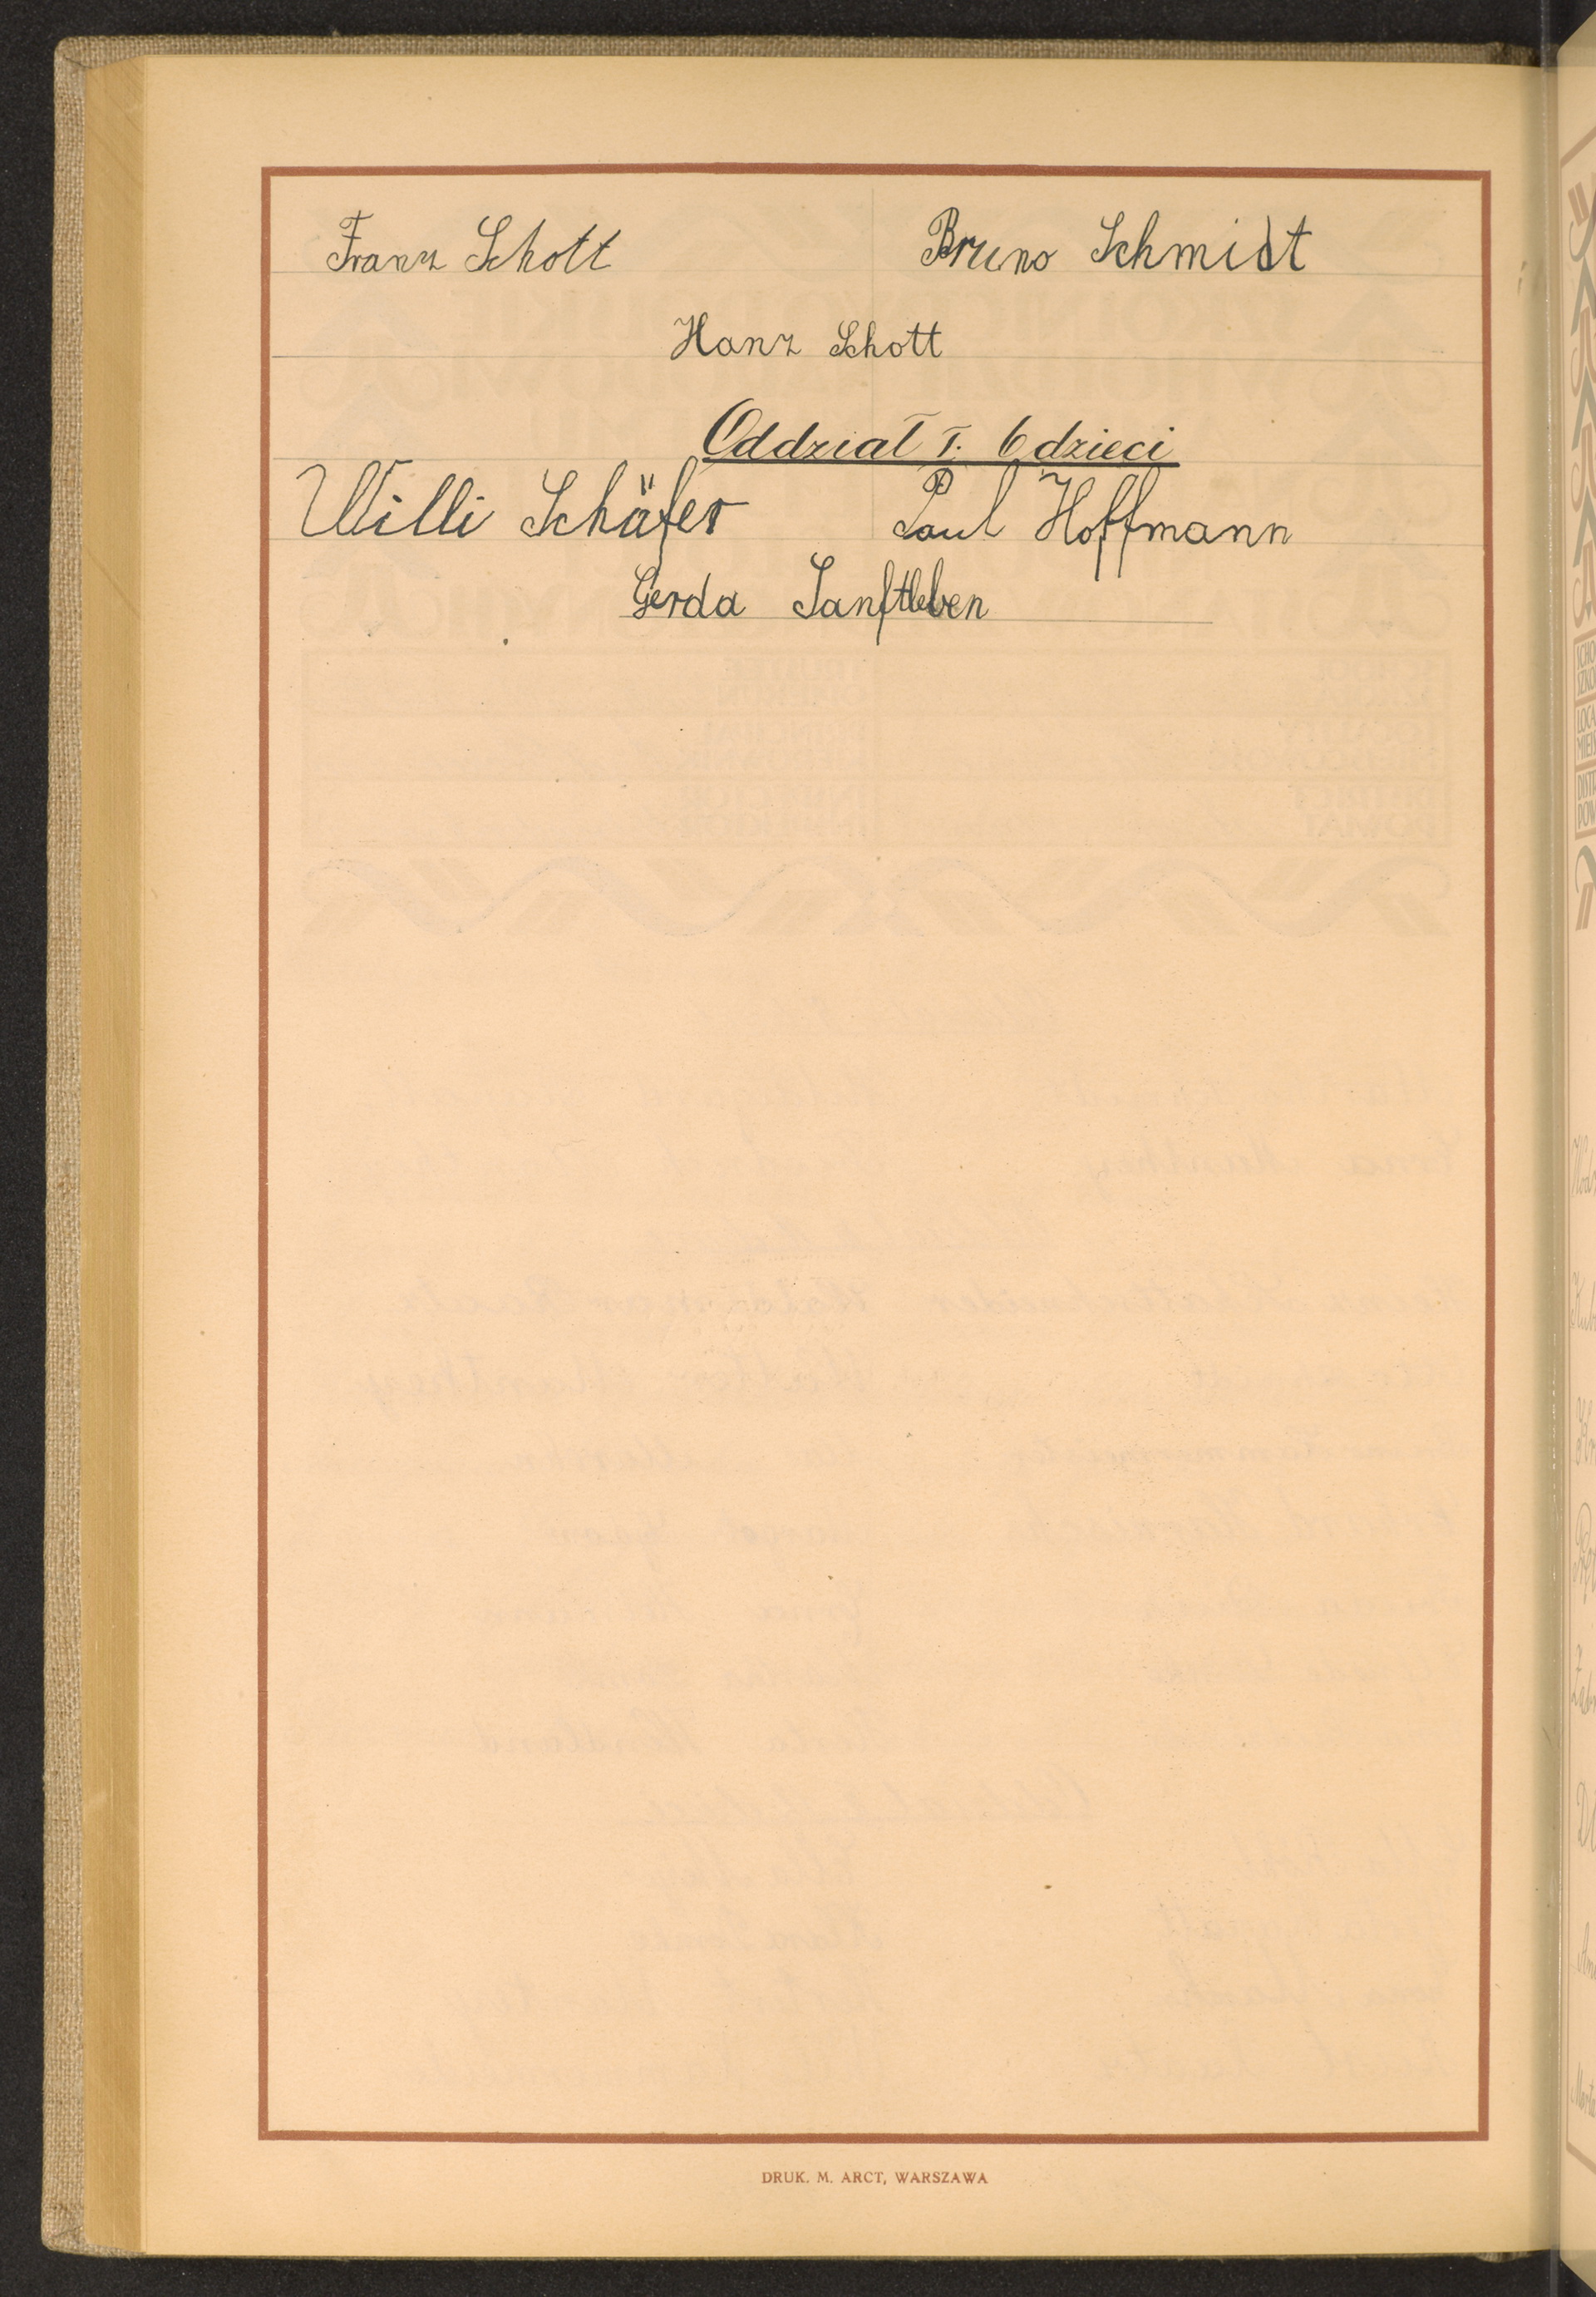 Franz Schott Bruno Schmidt
Hanz Schott
Oddział I. 6 dzieci
Willi Schäfer Paul Hoffmann
Gerda Sanftleben
DRUK. M. ARCT, WARSZAWA